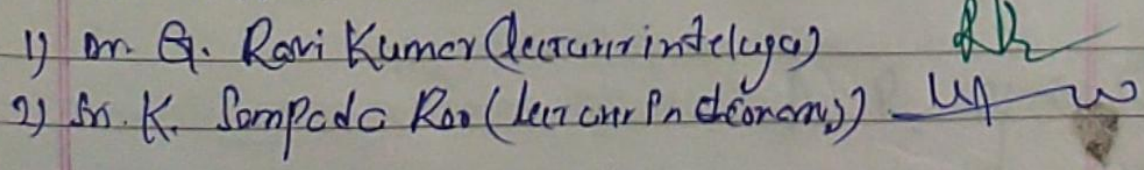 1) Dr. G. Ravi Kumar (Lecturer in telugu)
2) Sri. K. Sampada Rao (Lecturer in Economics)